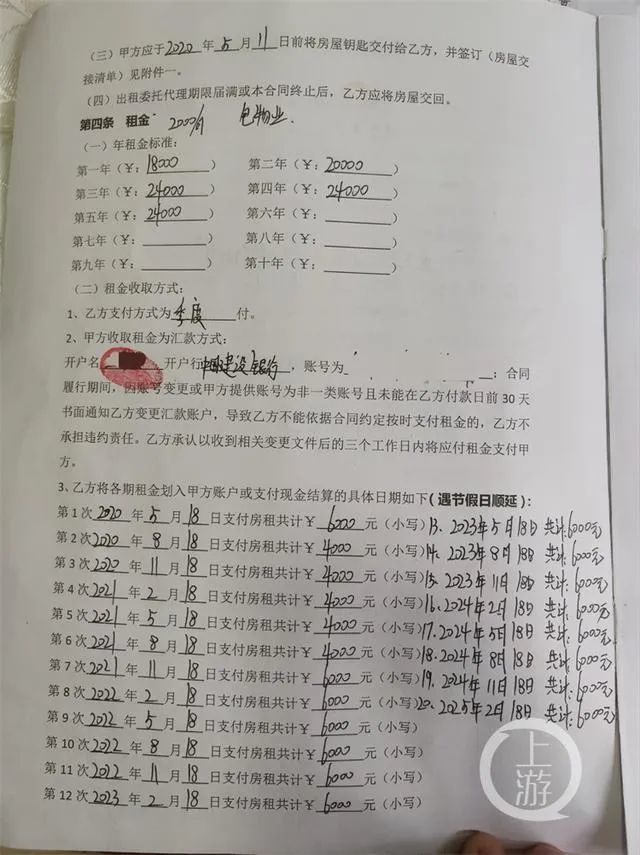 （三）甲方应于2020年5月11日前将房屋钥匙交付给乙方，并签订（房屋交
接清单）见附件一。
（四）出租委托代理期限届满或本合同终止后，乙方应将房屋交回。
第四条 租金 2000/月 包物业.
（一）年租金标准：
第一年（¥：18000） 第二年（¥：20000）
第三年（¥：24000） 第四年（¥：24000）
第五年（¥：24000） 第六年（¥：）
第七年（¥：） 第八年（¥：）
第九年（¥：） 第十年（¥：）
（二）租金收取方式：
1、乙方支付方式为季度付。
2、甲方收取租金为汇款方式：
开户名 开户行中国建设银行，账号为；合同
履行期间，因账号变更或甲方提供账号为非一类账号且未能在乙方付款日前 30 天
书面通知乙方变更汇款账户，导致乙方不能依据合同约定按时支付租金的，乙方不
承担违约责任。乙方承认以收到相关变更文件后的三个工作日内将应付租金支付甲
方。
3、乙方将各期租金划入甲方账户或支付现金结算的具体日期如下（遇节假日顺延）：
第 1 次2020年5月18日支付房租共计¥6000元（小写）13. 2023年5月18日 共计:6000元
第 2 次2020年8月18日支付房租共计¥4000元（小写）14. 2023年8月18日 共计:6000元
第 3 次2020年11月18日支付房租共计¥4000元（小写）15. 2023年11月18日 共计:6000元
第 4 次2021年2月18日支付房租共计¥4000元（小写）16. 2024年2月18日 共计:6000元
第 5 次2021年5月18日支付房租共计¥4000元（小写）17. 2024年5月18日 共计:6000元
第 6 次2021年8月18日支付房租共计¥4000元（小写）18. 2024年8月18日 共计:6000元
第 7 次2021年11月18日支付房租共计¥6000元（小写）19. 2024年11月18日 共计:6000元
第 8 次2022年2月18日支付房租共计¥6000元（小写）20. 2025年2月18日 共计:6000元
第 9 次2022年5月18日支付房租共计¥6000元（小写）
第 10 次2022年8月18日支付房租共计¥6000元（小写）
第 11 次2022年11月18日支付房租共计¥6000元（小写）
第 12 次2023年2月18日支付房租共计¥6000元（小写）
上游